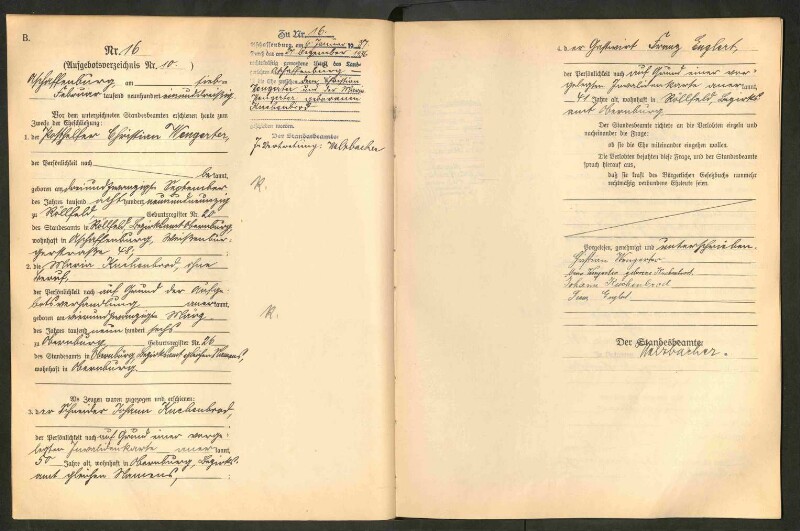 B.
Nr. 16
(Aufgebotsverzeichnis Nr. 10.)
Aschaffenburg am sieb-
Februar tausend neunhundert
Vor dem unterzeichneten Standesbeamten erschienen heute zum
Zwecke der Eheschließung:
1. der Posthelfer Christian Wengerter,
der Persönlichkeit nach
be kannt,
geboren am dreiundzwanzigsten September
des Jahres tausend acht hundert neunundneunzig
zu Röllfeld, Geburtsregister Nr. 20
des Standesamts in Röllfeld, Bezirksamt Obernburg,
wohnhaft in Aschaffenburg, Weißenbur-
gerstraße 48,
2. die Maria Kuchenbrod, ohne
Beruf,
der Persönlichkeit nach auf Grund der Aufge-
botsverhandlung aner kannt,
geboren am vierundzwanzigsten März
des Jahres tausend neun hundert sechs
zu Obernburg, Geburtsregister Nr. 26
des Standesamts in Obernburg, Bezirksamt gleichen Namens,
wohnhaft in Obernburg
Als Zeugen waren zugezogen und erschienen:
3. der Schneider Johann Kuchenbrod,
der Persönlichkeit nach auf Grund einer vorge-
legten Invalidenkarte aner kannt,
50 Jahre alt, wohnhaft in Obernburg, Bezirks-
amt gleichen Namens,
Zu Nr. 16.
Aschaffenburg, am Januar 19
Durch das am Dezember
rechtskräftig gewordene Urteil des Land-
gerichts Aschaffenburg
ist die Ehe zwischen dem Christian
Wengerter und der Maria
Wengerter geborenen
Kuchenbrod
geschieden worden.
Der Standesbeamte
In Vertretung: Welzbacher
K.
K.
4. der Gastwirt Franz Englert,
der Persönlichkeit nach auf Grund einer vor-
gelegten Invalidenkarte aner kannt,
41 Jahre alt, wohnhaft in Röllfeld, Bezirks-
amt Obernburg
Der Standesbeamte richtete an die Verlobten einzeln und
nacheinander die Frage:
ob sie die Ehe miteinander eingehen wollen.
Die Verlobten bejahten diese Frage, und der Standesbeamte
sprach hierauf aus,
daß sie kraft des Bürgerlichen Gesetzbuchs nunmehr
rechtmäßig verbundene Eheleute seien.
Vorgelesen, genehmigt und unterschrieben.
Christian Wengerter
Maria Wengerter geborene Kuchenbrod
Johann Kuchenbrod
Franz Englert
Der Standesbeamte:
Welzbacher.